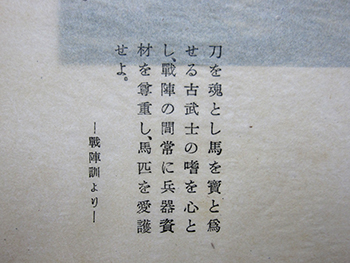 刀を魂とし馬を寶と爲
せる古武士の嗜を心と
し、戰陣の間常に兵器資
材を尊重し、馬匹を愛護
せよ。
―戰陣訓より―